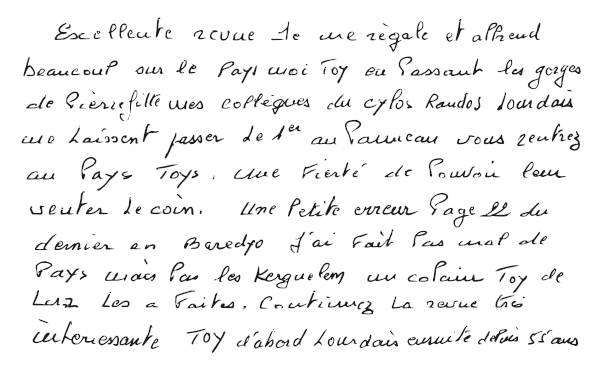 Excellente revue Je me règale et apprend
beaucoup sur le Pays moi Toy en Passant les gorges
de Pièrrefitte mes collègues du cyclos Randos Lourdais
me Laissent passer le 1er au Panneau vous rentrez
au Pays Toys. une Fierté de Pouvoir leur
venter le coin. Une Petite erreur Page 22 du
dernier en Baredyo J'ai Fait Pas mal de
Pays mais Pas les Kerguelem un copain Toy de
Luz Les a Faites. Continuez La revue très
interressante TOY d'abord Lourdais ensuite depuis 55 ans